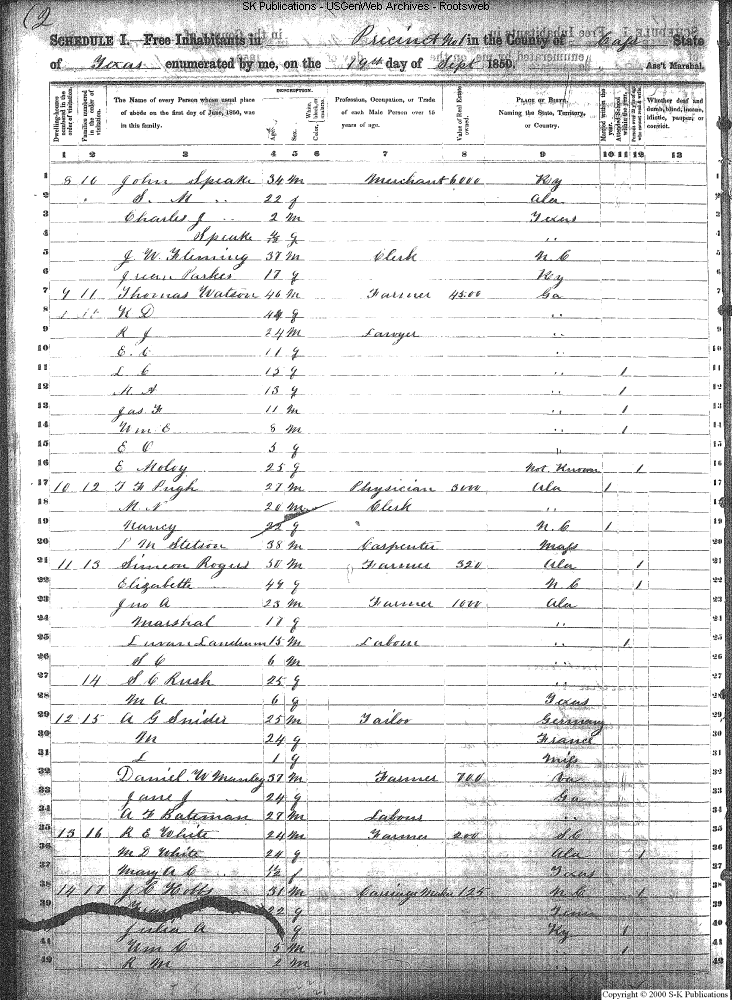 SK Publications - USGenWeb Archives - Rootsweb
(2
SCHEDULE I.—Free Inhabitants in Precinct No1 in the County of Cass State
of Texas enumerated by me, on the 19th day of Sept 1850. Ass't Marshal.
DESCRIPTION.
Dwelling-houses numbered in the order of visitation.
Families numbered in the order of visitation.
The Name of every Person whose usual place of abode on the first day of June, 1850, was in this family.
Age.
Sex.
Color,
Profession, Occupation, or Trade of each Male Person over 15 years of age.
Value of Real Estate owned.
PLACE OF BIRTH, Naming the State, Territory, or Country.
Married within the year.
Attended School within the year.
Whether deaf and dumb, blind, insane, idiotic, pauper, or convict.
1 2 3 4 5 6 7 8 9 10 11 12 13
1 10 John Speake 34 M Merchant 6000 Ky
2 S. M " 22 f Ala
3 Charles J " 2 M Texas
4 Speake f "
5 J. W. Fleming 37 M Clerk N. C
6 Parkes 17 f Ky
7 9 11 Thomas Watson 46 M Farmer 4500 Ga
8 D 44 f "
9 R J 24 M Lawyer "
10 E. C 11 f "
11 L C 15 f " 1
12 M. A 13 f " 1
13 Jas F 11 M " 1
14 Wm E 8 M " 1
15 E C 5 f "
16 E Moloy 25 f Not Known 1
17 10 12 Pugh 27 M Physician 3000 Ala 1
18 M. N 20 M Clerk "
19 Nancy 22 f " N. C 1
20 M Stetson 38 M Carpenter Mass
21 11 13 Simeon Rogers 50 M Farmer 320 Ala 1
22 Elizabeth 49 f N C 1
23 Jno A 23 M Farmer 1000 Ala
24 Marshal 17 f "
25 Landrum 15 M Labour " 1
26 S C 6 M "
27 14 S C Rush 25 f
28 M A 6 f Texas
29 12 15 A G Snider 25 M Tailor Germany
30 M 24 f France
31 L 1 f Miss
32 Daniel W Manley 37 M Farmer 700 Va
33 Jane J " 24 f Ga
34 A F Bateman 27 M Labour "
35 13 16 R E White 24 M Farmer 200 S C
36 M D White 20 f Ala 1
37 Mary A C f Texas
38 14 17 J C Hotts 31 M Carriage Maker 125 N. C 1
39 22 f Tenn
40 Julia A f Ky 1
41 Wm C 5 M " 1
42 R M 2 M "
Copyright © 2000 S-K Publications